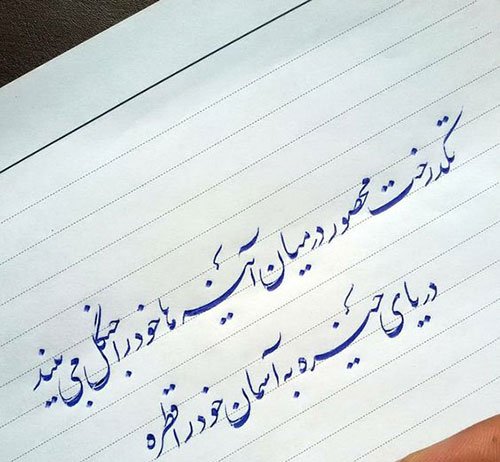 تکدرخت محصور در میان آئینه ها خود را جنگل می بیند
دریای خیره به آسمان خود را قطره